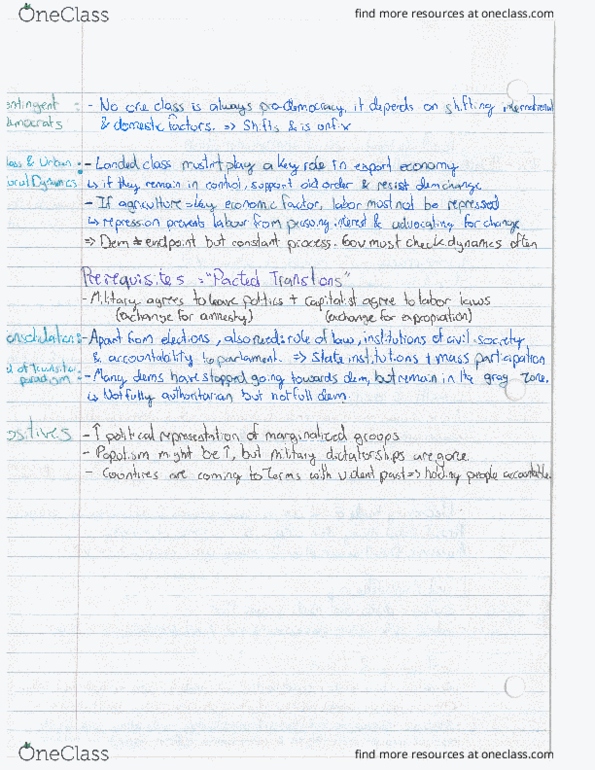 OneClass
find more resources at oneclass.com
ontingent : - No one class is always pro-democracy, it depends on shifting international
emocrats & domestic factors. => Shifts & is onfix
lass & Urban : - Landed class mustn't play a key role in export economy
Dynamics ↳ if they remain in control, support old order & resist dem change
- If agriculture = key economic factor, labor must not be repressed
↳ repression prevents labour from pursuing interest & advocating for change
=> Dem ≠ endpoint but constant process. Gov must check dynamics often
Prerequisites = "Pacted Transtions"
- Military agrees to leave politics + capitalist agree to labor laws
(exchange for amnesty) (exchange for expropiation)
onsolidation : - Apart from elections, also need: rule of law, institutions of civil society,
& accountability to parlament. => State institutions + mass participation
paradigm : - Many dems have stopped going towards dem, but remain in the gray zone.
↳ Not fully authoritarian but not full dem.
ositives - ↑ political representation of marginalized groups
- Populism might be ↑, but military dictatorships are gone
- Countires are coming to terms with violent past => holding people accountable.
OneClass
find more resources at oneclass.com